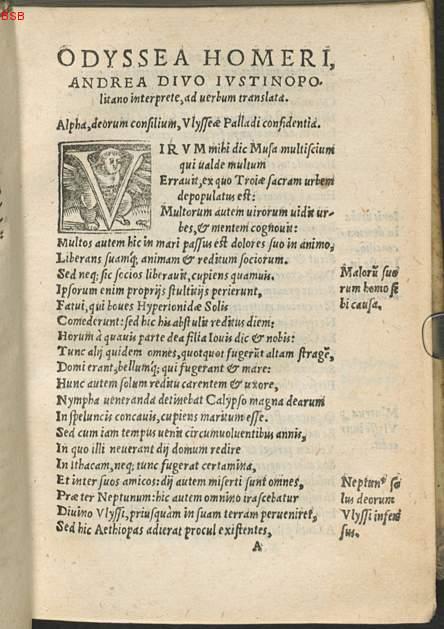 BSB
ODYSSEA HOMERI,
ANDREA DIVO IVSTINOPO-
litano interprete, ad uerbum translata.
Alpha, deorum consilium, Vlysseæ Palladi confidentia.
VIRVM mihi dic Musa multiscium
qui ualde multum
Errauit, ex quo Troiæ sacram urbem
depopulatus est:
Multorum autem uirorum uidit ur-
bes, & mentem cognouit:
Multos autem hic in mari passus est dolores suo in animo,
Liberans suamq; animam & reditum sociorum.
Sed neq; sic socios liberauit, cupiens quamuis.
Ipsorum enim proprijs stultitijs perierunt,
Fatui, qui boues Hyperionidæ Solis
Comederunt: sed hic his abstulit reditus diem:
Horum à quauis parte dea filia Iouis dic & nobis:
Tunc alij quidem omnes, quotquot fugerūt altam stragē,
Domi erant, bellumq; qui fugerant & mare:
Hunc autem solum reditu carentem & uxore,
Nympha ueneranda detinebat Calypso magna dearum
In speluncis concauis, cupiens maritum esse.
Sed cum iam tempus uenit circumuoluentibus annis,
In quo illi neuerant dij domum redire
In Ithacam, neq; tunc fugerat certamina,
Et inter suos amicos: dij autem miserti sunt omnes,
Præter Neptunum: hic autem omnino irascebatur
Diuino Vlyssi, priusquàm in suam terram perueniret,
Sed hic Aethiopas adierat procul existentes,
A
Malorū suo
rum homo sē
bi causa.
Neptun⁹ so
lus deorum
Vlyssi infen
sus.